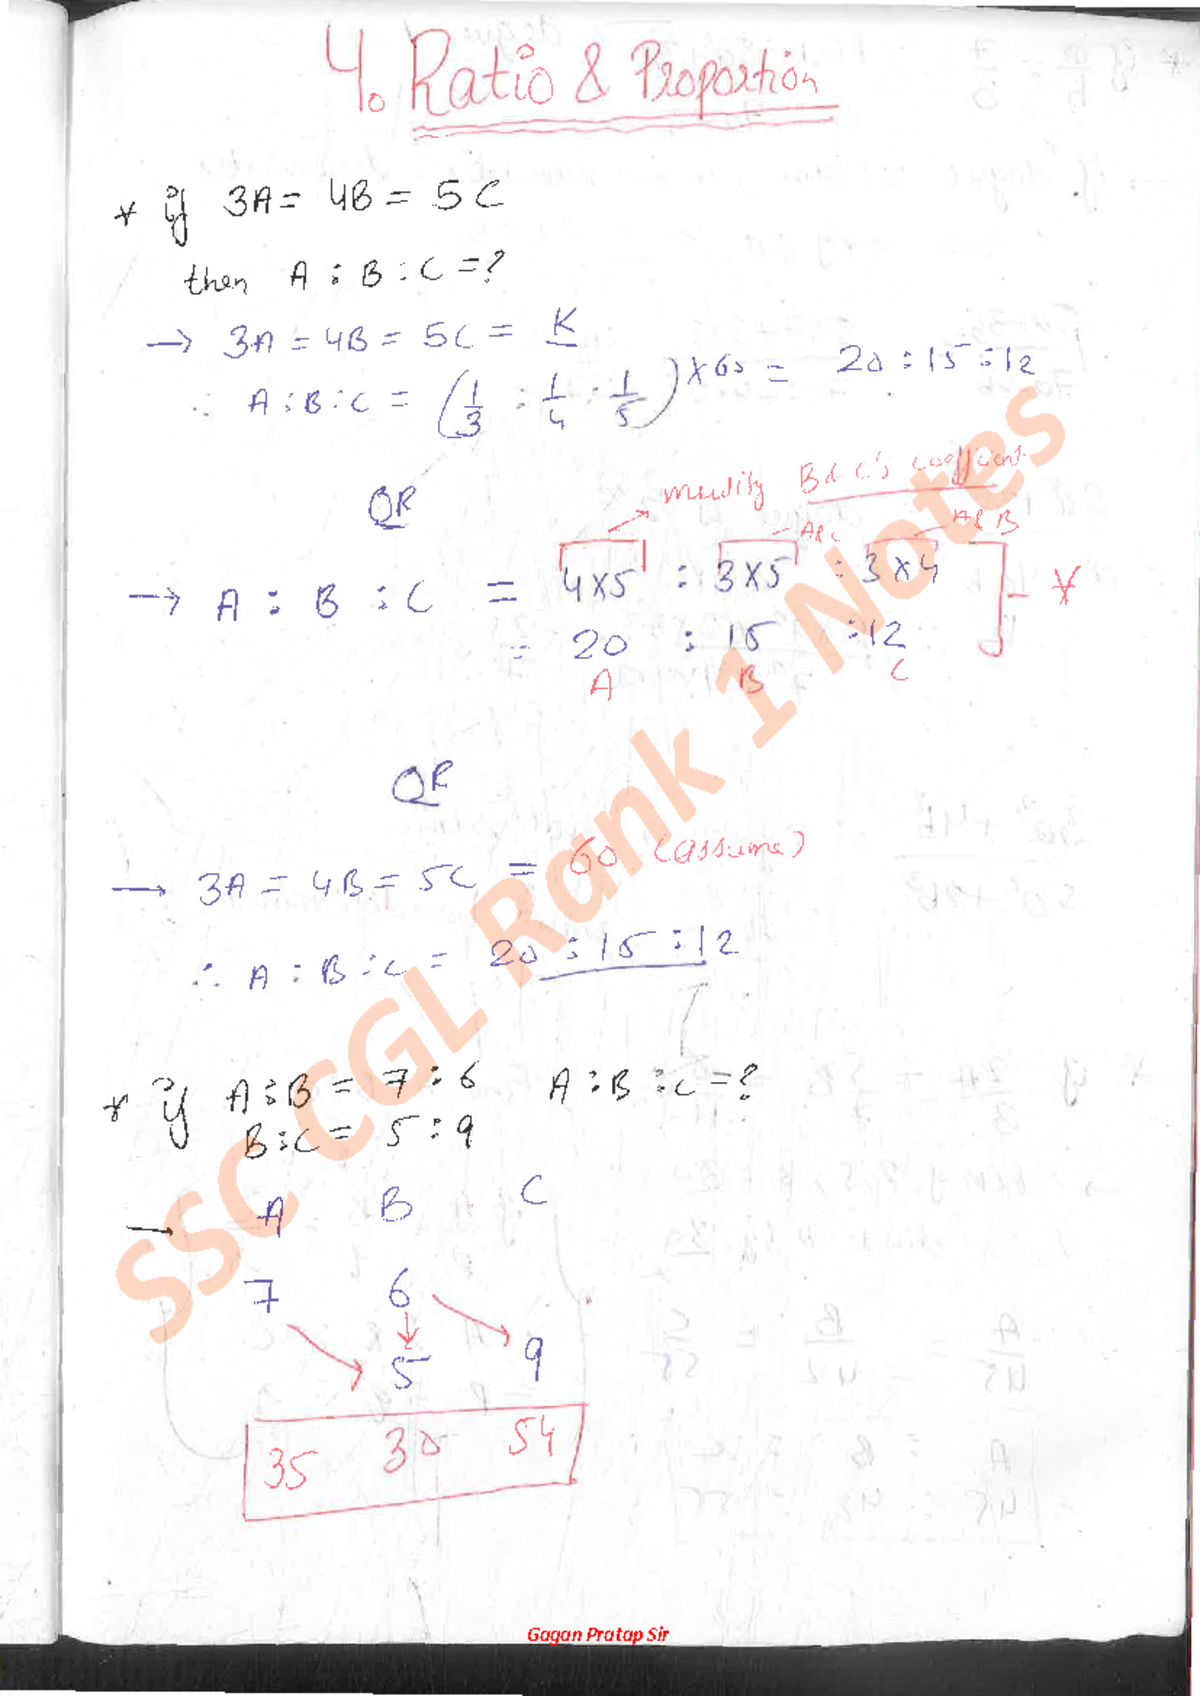 4. Ratio & Proportion
* if 3A = 4B = 5C
then A : B : C = ?
→ 3A = 4B = 5C = K
∴ A : B : C = (1/3 : 1/4 : 1/5) × 60 = 20 : 15 : 12
OR
→ multiply B & C's coefficient
A & C
A & B
→ A : B : C = 4×5 : 3×5 : 3×4
= 20 : 15 : 12
A B C
OR
→ 3A = 4B = 5C = 60 (assume)
∴ A : B : C = 20 : 15 : 12
* if A : B = 7 : 6 A : B : C = ?
B : C = 5 : 9
→ A B C
7 6
5 9
35 30 54
SSC CGL Rank 1 Notes
Gagan Pratap Sir